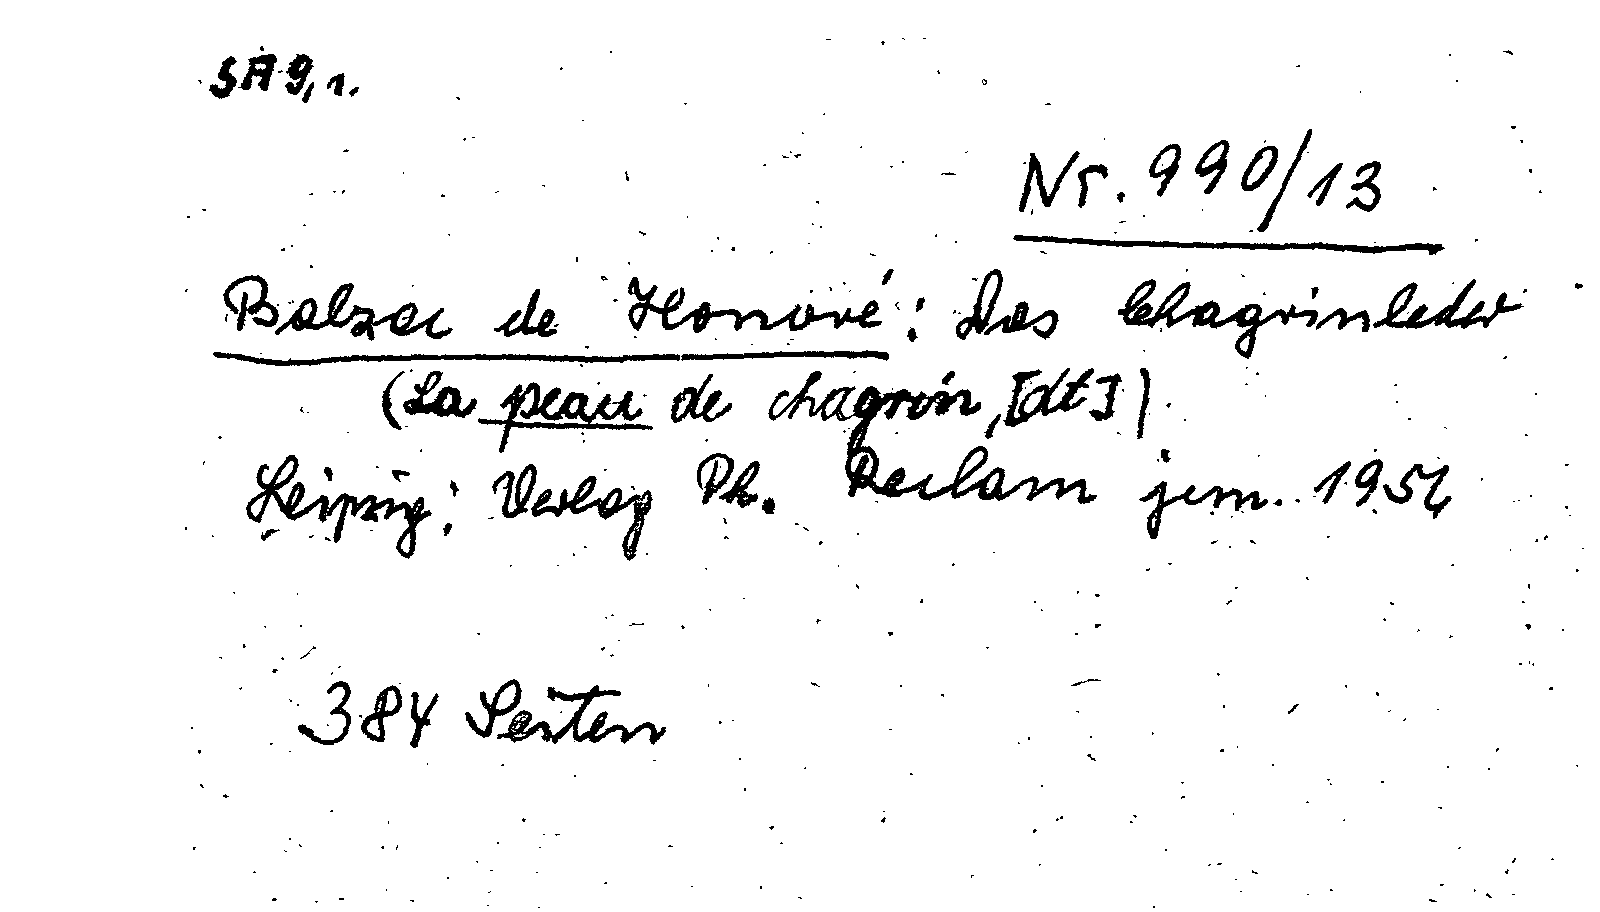 SA 9,1.
Nr. 990/13
Balzac de Honoré: Das Chagrinleder
(La peau de chagrin, [dt])
Leipzig: Verlag Ph. Reclam jun. 1954
384 Seiten